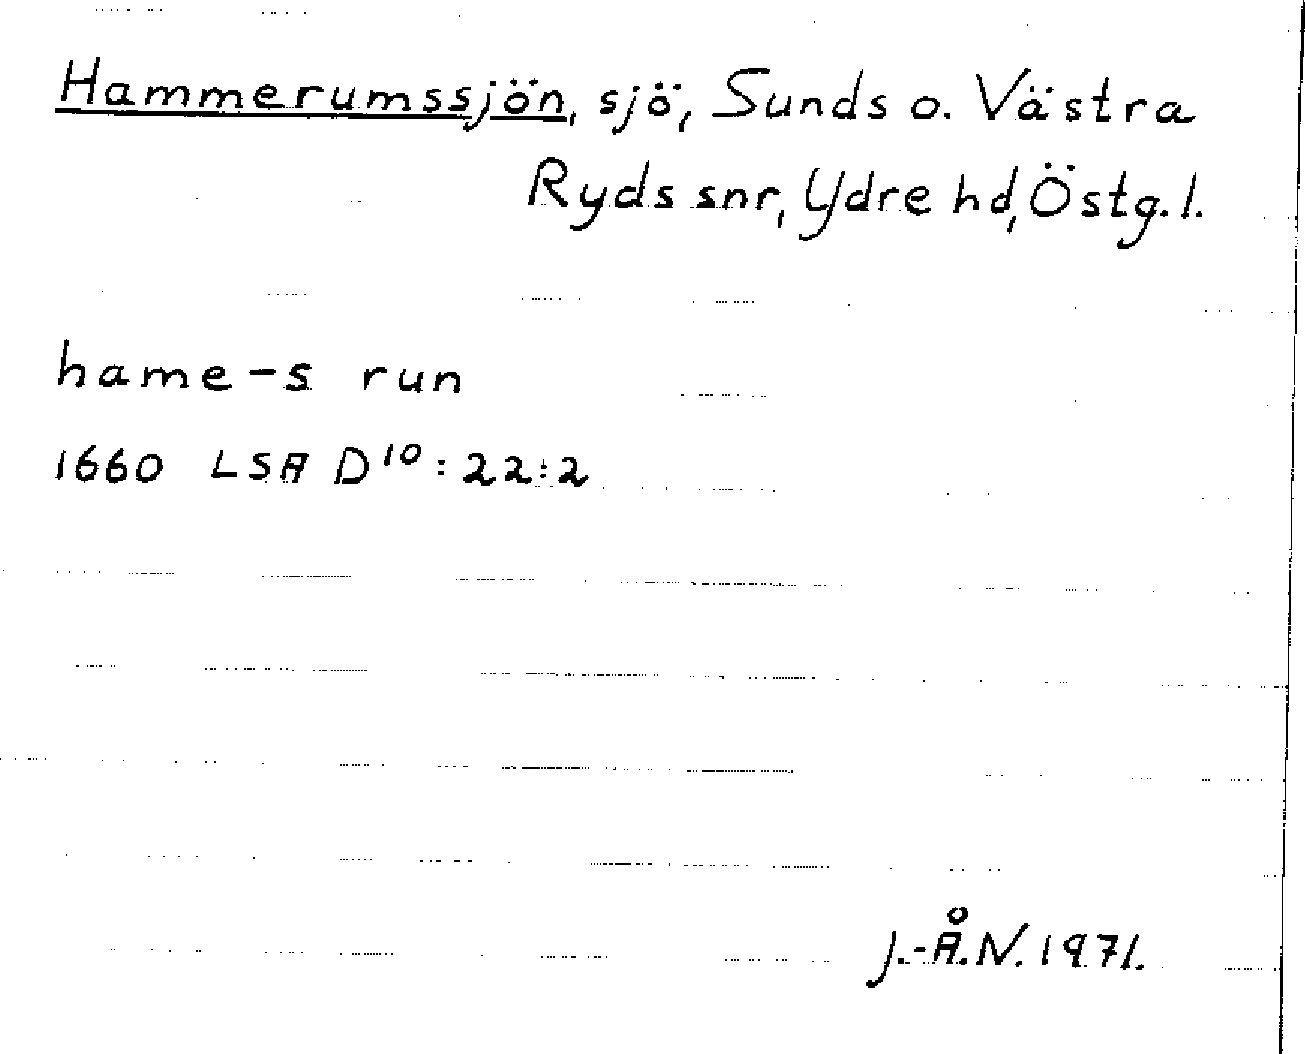 Hammerumssjön, sjö, Sunds o. Västra
Ryds snr, Ydre hd, Östg. l.
hame-s run
1660 LSA D¹⁰:22:2
J.-Å.N. 1971.